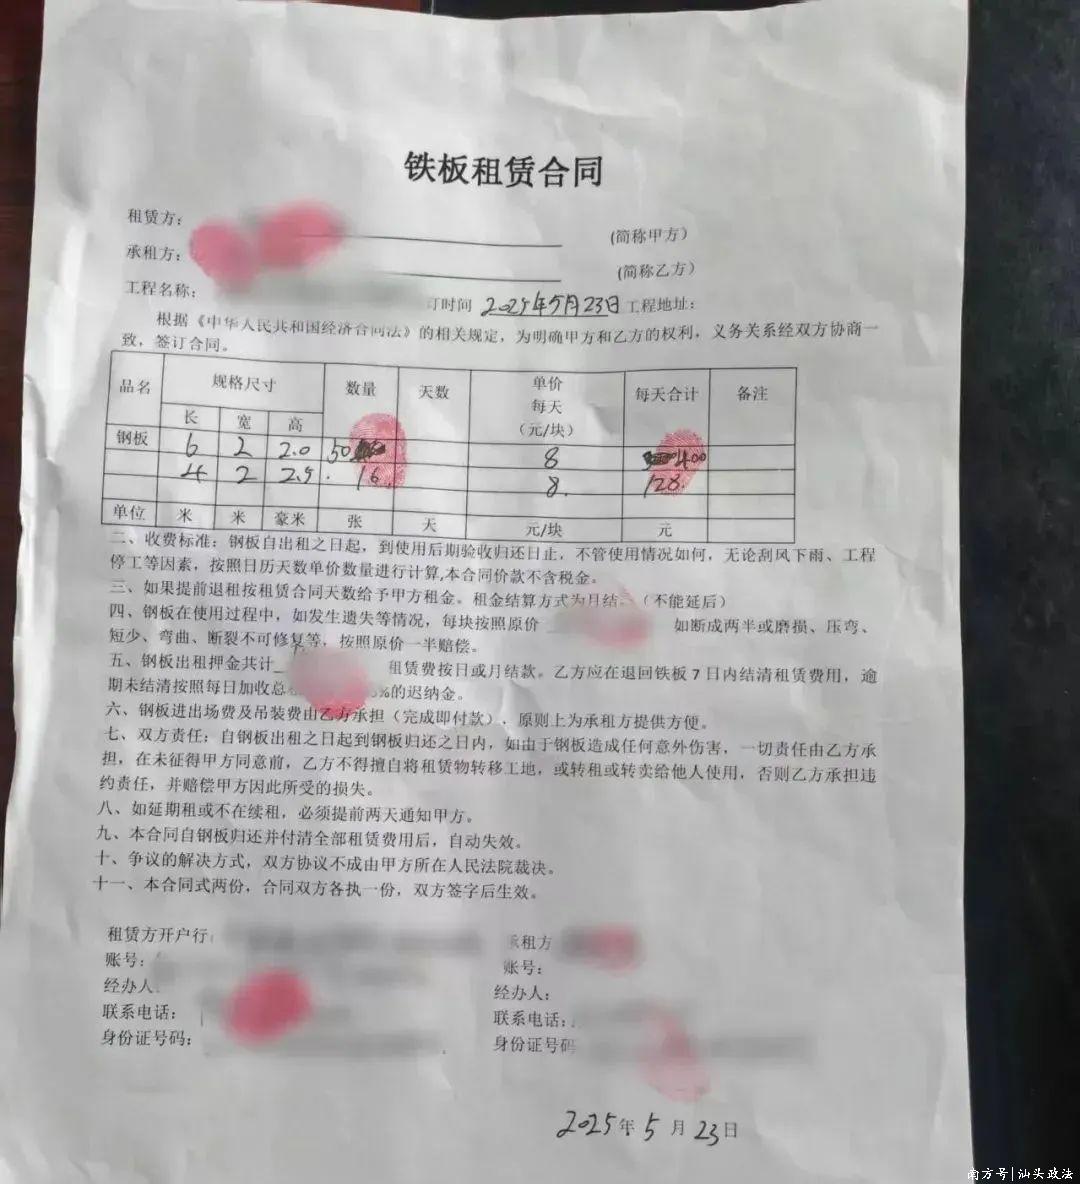 铁板租赁合同
租赁方：
(简称甲方)
承租方：
(简称乙方)
工程名称：
订时间 2025年5月23日 工程地址：
根据《中华人民共和国经济合同法》的相关规定，为明确甲方和乙方的权利，义务关系经双方协商一
致，签订合同。
品名 规格尺寸 数量 天数 单价 每天 （元/块） 每天合计 备注
长 宽 高
钢板 6 2 2.0 50 8 400
4 2 2.5. 16 8. 128.
单位 米 米 豪米 张 天 元/块 元
二、收费标准：钢板自出租之日起，到使用后期验收归还日止，不管使用情况如何，无论刮风下雨、工程
停工等因素，按照日历天数单价数量进行计算,本合同价款不含税金。
三、如果提前退租按租赁合同天数给予甲方租金。租金结算方式为月结。（不能延后）
四、钢板在使用过程中，如发生遗失等情况，每块按照原价 如断成两半或磨损、压弯、
短少、弯曲、断裂不可修复等，按照原价一半赔偿。
五、钢板出租押金共计 租赁费按日或月结款。乙方应在退回铁板 7 日内结清租赁费用，逾
期未结清按照每日加收总 %的迟纳金。
六、钢板进出场费及吊装费由乙方承担（完成即付款），原则上为承租方提供方便。
七、双方责任：自钢板出租之日起到钢板归还之日内，如由于钢板造成任何意外伤害，一切责任由乙方承
担，在未征得甲方同意前，乙方不得擅自将租赁物转移工地，或转租或转卖给他人使用，否则乙方承担违
约责任，并赔偿甲方因此所受的损失。
八、如延期租或不在续租，必须提前两天通知甲方。
九、本合同自钢板归还并付清全部租赁费用后，自动失效。
十、争议的解决方式，双方协议不成由甲方所在人民法院裁决。
十一、本合同式两份，合同双方各执一份，双方签字后生效。
租赁方开户行
承租方
账号：
账号：
经办人
经办人：
联系电话：
联系电话：
身份证号码：
身份证号码
2025年 5 月 23日
南方号|汕头政法